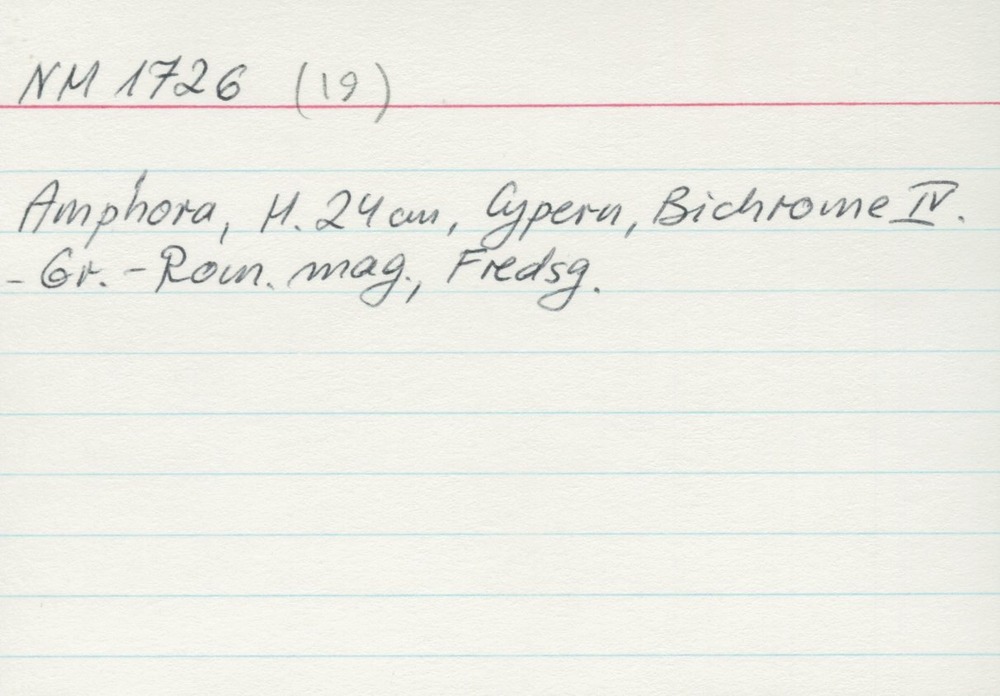 NM 1726 (19)
Amphora, H. 24 cm, Cypern, Bichrome IV.
- Gr. - Rom. mag., Fredsg.